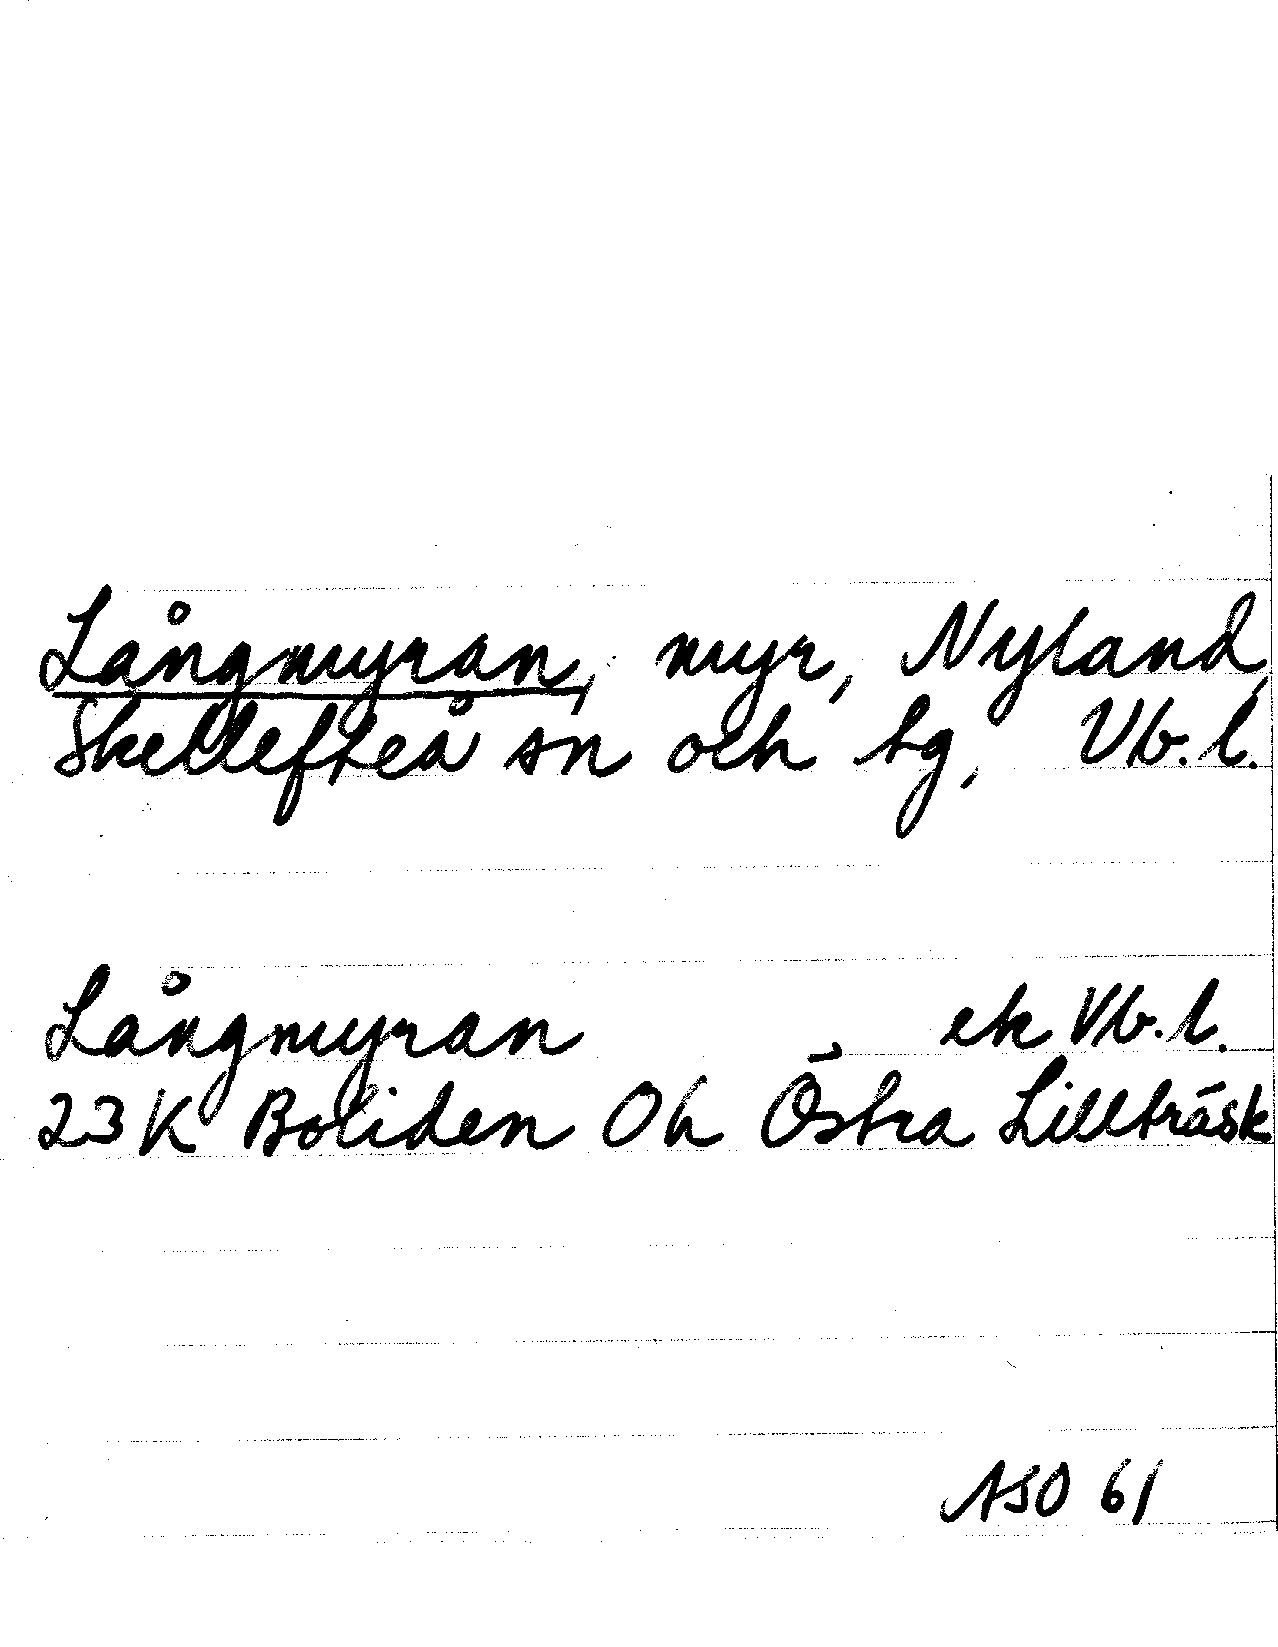 Långmyran, myr, Nyland,
Skellefteå sn och tg, Vb.l.
Långmyran ek Vb.l.
23K Boliden 0h Östra Lillträsk
ASO 61